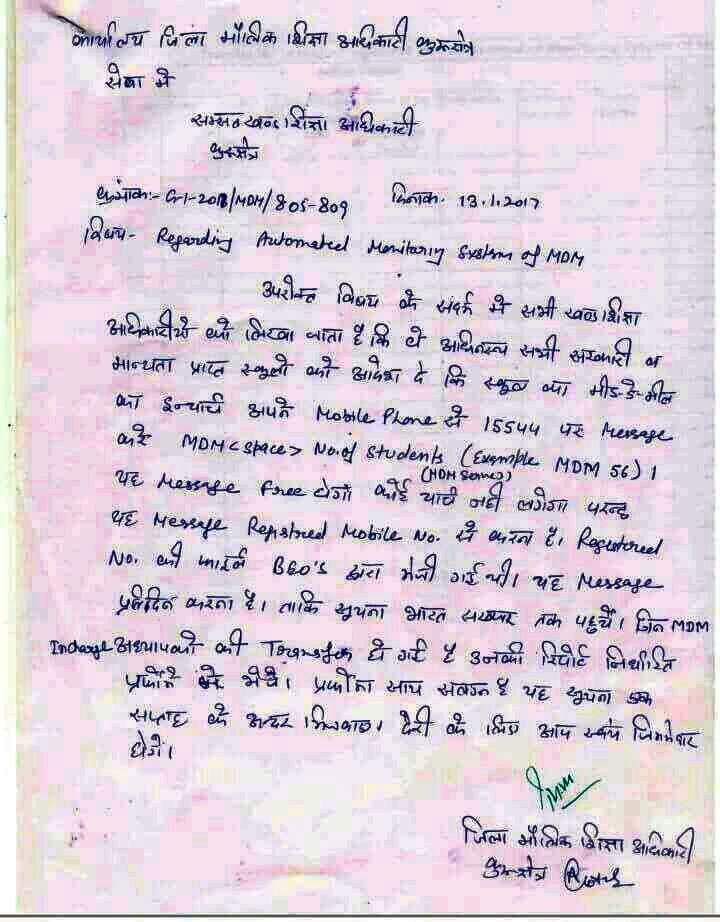 कार्यालय जिला मौलिक शिक्षा अधिकारी कुरूक्षेत्र
सेवा में
समस्त खण्ड शिक्षा अधिकारी
कुरूक्षेत्र
क्रमांक:- /MDM/805-809 दिनांक. 13.1.2017
विषय- Regarding Automated Monitoring System of MDM
उपरोक्त विषय के संदर्भ में सभी खण्ड शिक्षा
अधिकारीयो को लिखा जाता है कि वे अधिनस्थ सभी सरकारी व
मान्यता प्राप्त स्कूलो को आदेश दे कि स्कूल का मीड-डे-मील
का इन्चार्ज अपने Mobile Phone से 15544 पर Message
करें MDM <space> No. of Students (Example MDM 56)।
(MDM Served)
यह Message free होगा कोई चार्ज नही लगेगा परन्तु
यह Message Registered Mobile No. से करना है। Registered
No. की BEO'S द्वारा भेजी गई थी। यह Message
प्रतिदिन करना है। ताकि सूचना भारत सरकार तक पहुचें। जिन MDM
Incharge अध्यापको की Transfer हो गई है उनकी रिपोर्ट निर्धारित
प्रर्फोमे में भेजे। प्रर्फोमा साथ सलंग्न है यह सूचना एक
सप्ताह के अन्दर भिजवाए। देरी के लिए आप स्वंय जिम्मेवार
होगें।
जिला मौलिक शिक्षा अधिकारी
कुरूक्षेत्र